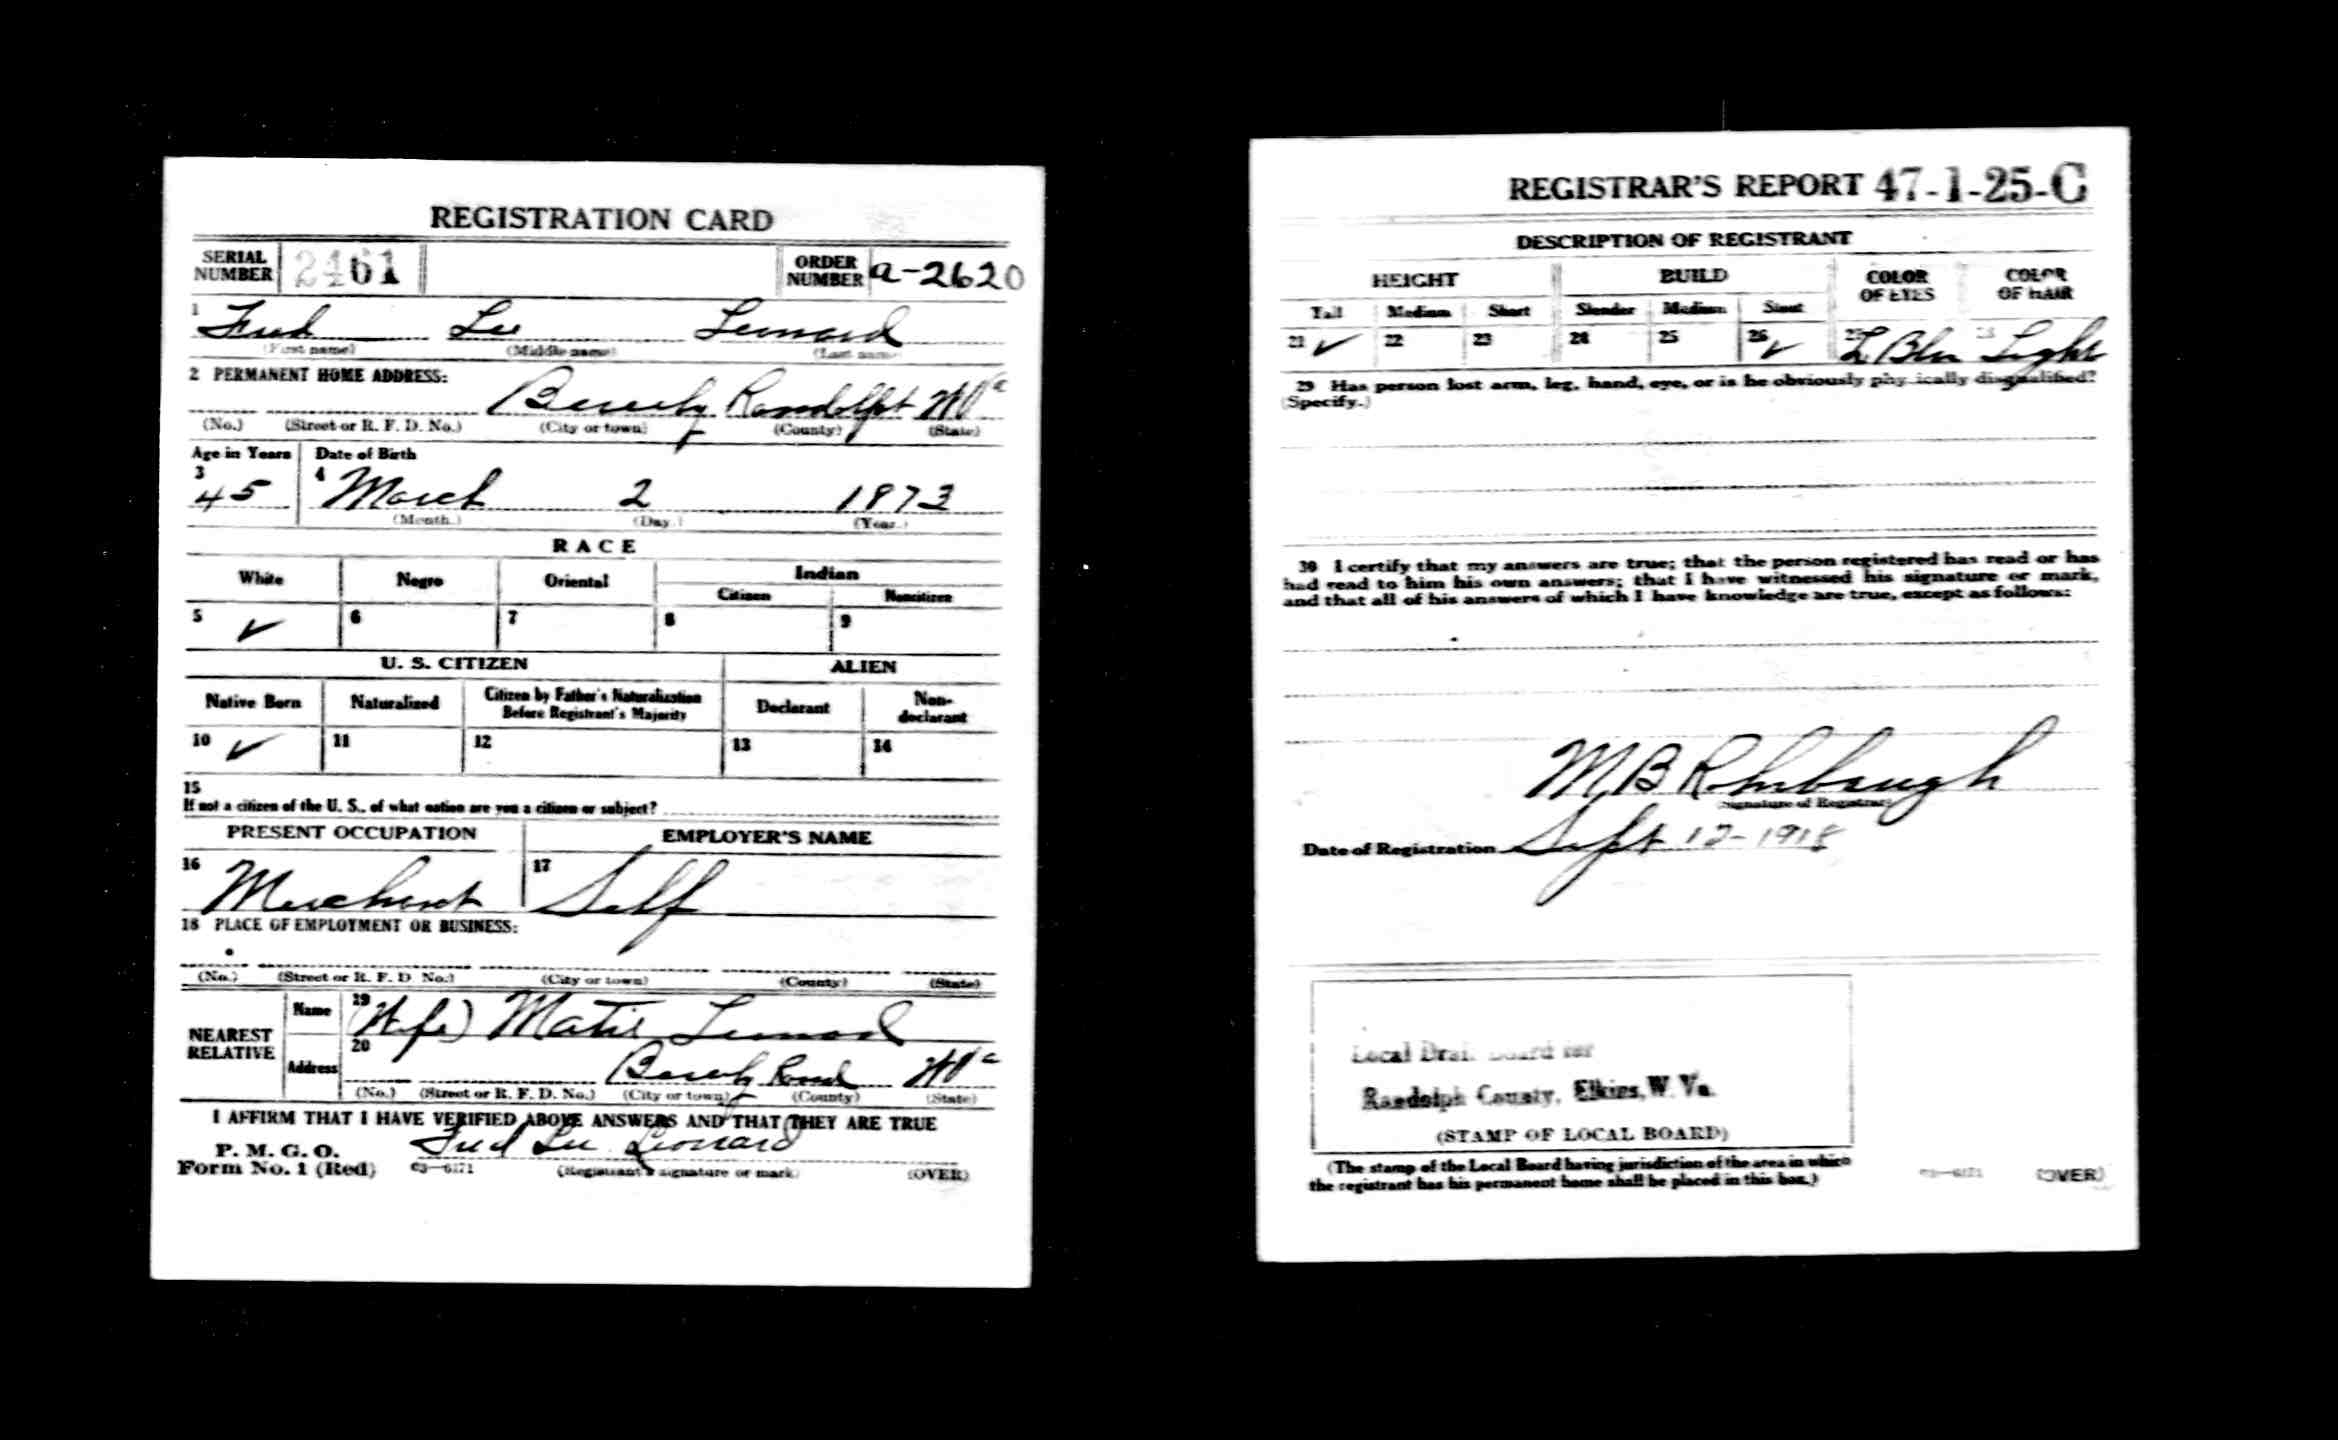 REGISTRATION CARD
SERIAL NUMBER 2461 ORDER NUMBER a-2620
1 Fred Lee Leonard
(First name) (Middle name) (Last name)
2 PERMANENT HOME ADDRESS:
Beverly Randolph W Va
(No.) (Street or R. F. D. No.) (City or town) (County) (State)
Age in Years Date of Birth
3 4
45 March 2 1873
(Month.) (Day.) (Year.)
RACE
White Negro Oriental Indian
Citizen Noncitizen
5 ✓ 6 7 8 9
U. S. CITIZEN ALIEN
Native Born Naturalized Citizen by Father's Naturalization Before Registrant's Majority Declarant Non-declarant
10 ✓ 11 12 13 14
15
If not a citizen of the U. S., of what nation are you a citizen or subject?
PRESENT OCCUPATION EMPLOYER'S NAME
16 Merchant 17 Self
18 PLACE OF EMPLOYMENT OR BUSINESS:
(No.) (Street or R. F. D. No.) (City or town) (County) (State)
NEAREST RELATIVE
Name 19 (Wife) Matie Leonard
Address 20 Beverly Rand W Va
(No.) (Street or R. F. D. No.) (City or town) (County) (State)
I AFFIRM THAT I HAVE VERIFIED ABOVE ANSWERS AND THAT THEY ARE TRUE
P. M. G. O.
Form No. 1 (Red) 03—6171 Fred Lee Leonard
(Registrant's signature or mark) (OVER)
REGISTRAR'S REPORT 47-1-25-C
DESCRIPTION OF REGISTRANT
HEIGHT BUILD COLOR OF EYES COLOR OF HAIR
Tall Medium Short Slender Medium Stout
21 ✓ 22 23 24 25 26 ✓ 27 L Blu 28 Light
29 Has person lost arm, leg, hand, eye, or is he obviously physically disqualified?
(Specify.)
30 I certify that my answers are true; that the person registered has read or has
had read to him his own answers; that I have witnessed his signature or mark,
and that all of his answers of which I have knowledge are true, except as follows:
M B
(Signature of Registrar)
Date of Registration Sept 12-1918
Local Draft Board for
Randolph County, Elkins, W. Va.
(STAMP OF LOCAL BOARD)
(The stamp of the Local Board having jurisdiction of the area in which
the registrant has his permanent home shall be placed in this box.)
03—6171 (OVER)